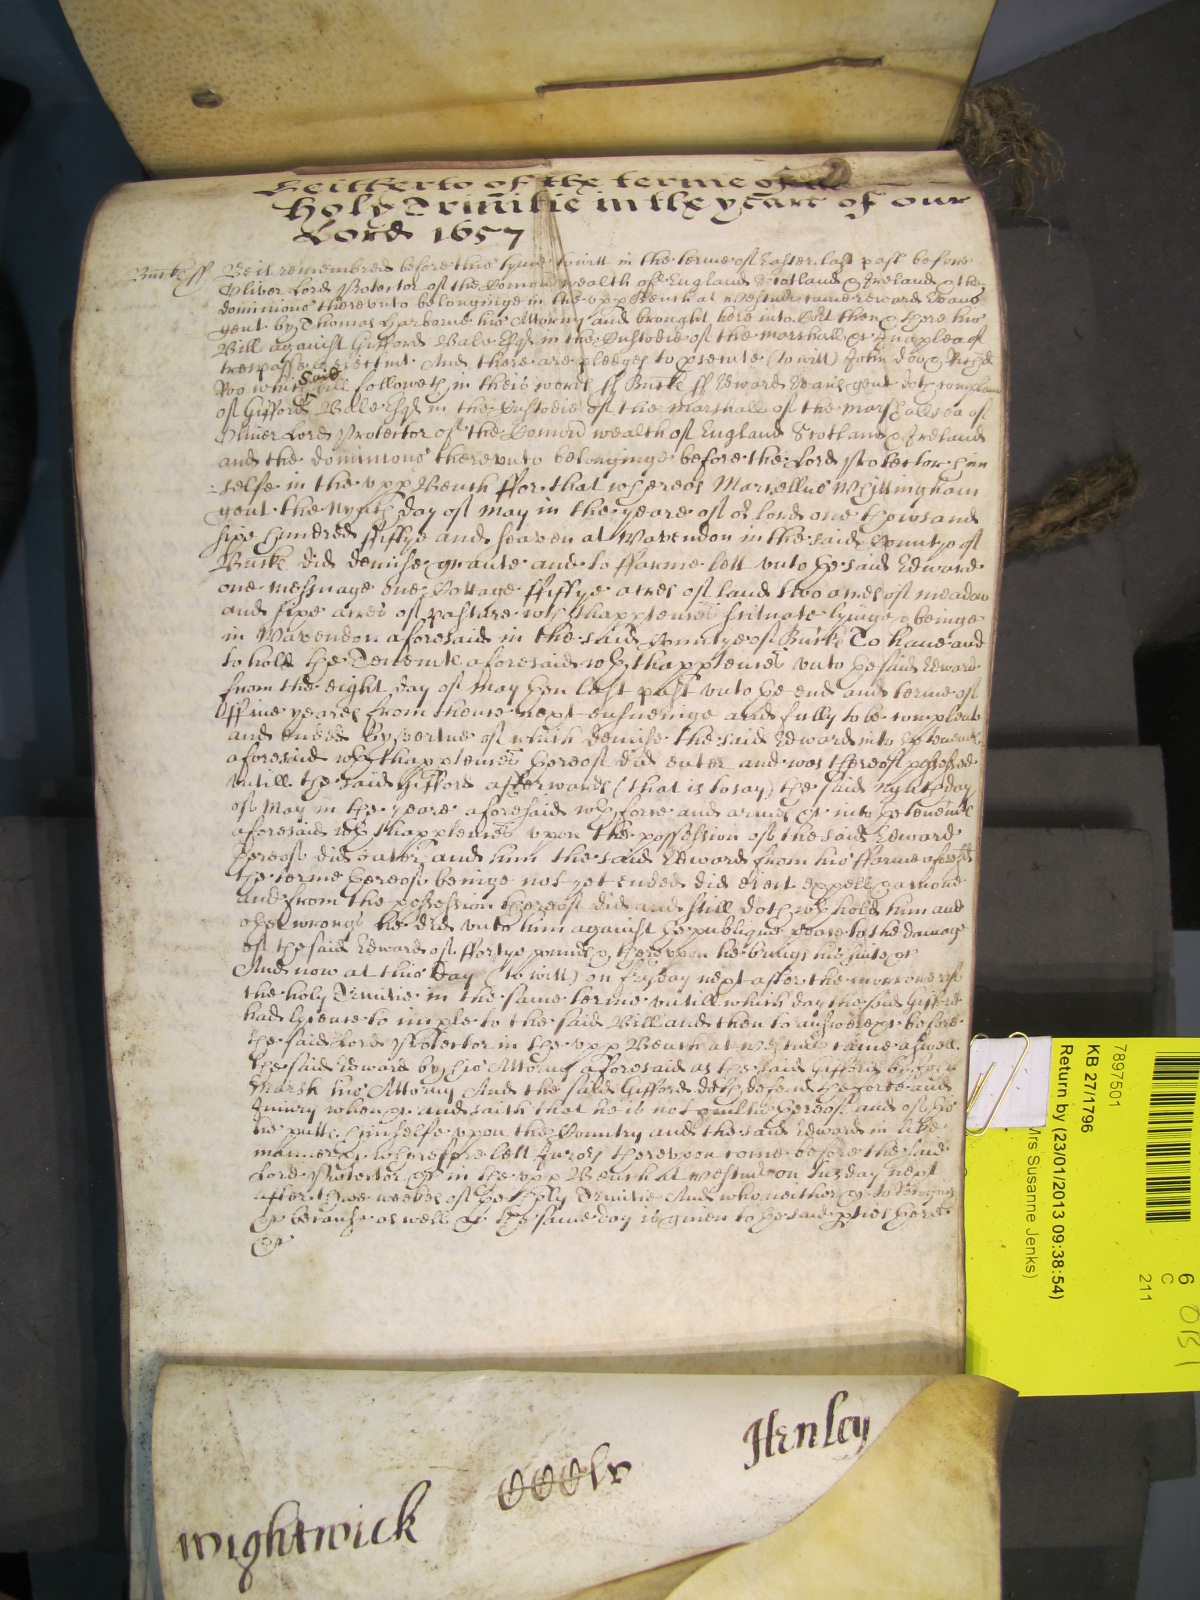 Hitherto of the terme of the
Holy Trinitie in the yeare of our
Lord 1657
Buck ss Be it remembred before this tyme to witt in the terme of Easter last past before
Oliver Lord Protector of the Comon wealth of England Scotland & Ireland & the
dominions therevnto belonginge in the vpp Bench at Westmr came Edward
gent by Thomas Harborne his Attorny and brought here into Court then & there his
Bill against Gifford Bale Esqr in the Custodie of the marshall &c in a plea of
trespasse & eiectmt And there are pledges to psecute (to witt) John Doo & Richd
Roo which said bill followeth in theis words ss Buck ss Edward gent doth complaine
of Gifford Bale Esqr in the Custodie of the marshall of the marshallsea of
Oliver Lord Protector of the Comon wealth of England Scotland & Ireland
and the dominions therevnto belonginge before the Lord Protector him
selfe in the vpp Bench ffor that whereas Marcellus Whittingham
gent the Nynth day of May in the yeare of or lord one thowsand
sixe hundred fiftye and seaven at Wavendon in the said Countye of
Buck did demise graunte and to ffarme lett vnto the said Edward
one messuage one Cottage ffiftye acres of land two acres of meadow
and sixe acres of pasture wth thapptenncs scituate lyinge & beinge
in Wavendon aforesaid in the said Countye of Buck To haue and
to hold the Tenemte aforesaid wth thapptenncs vnto the said Edward
from the eight day of May then last past vnto the end and terme of
ffiue yeares from thence next ensueinge and fully to be compleate
and ended By vertue of which demise the said Edward into the tenemte
aforesaid wth thapptenncs thereof did enter and was thereof possessed
vntill the said Gifford afterwards (that is to say) the said nynth day
of May in the yeare aforesaid wth force and armes &c into the tenemte
aforesaid wth thapptenncs vpon the possession of the said Edward
thereof did enter and him the said Edward from his ffarme aforesd
the terme thereof beinge not yet ended did eiect expell & amove
and from the possession thereof did and still doth wth hold him and
other wrongs he did vnto him against the publique peace to the damage
of the said Edward of ffortye pounds & therevpon he brings his suite &c
And now at this day (to witt) on fryday next after the morrow of
the holy Trinitie in the same terme vntill which day the said Gifford
had lycense to imple to the said Bill and then to answere &c before
the said Lord Protector in the vpp Bench at Westmr came aswell
the said Edward by his Attorny aforesaid as the said Gifford by
Marsh his Attorny And the said Gifford doth defend the force and
Iniury when &c and saith that he is not guiltie thereof and of this
he putts himselfe vpon the Country and the said Edward in like
manner &c Therefore lett Iurors therevpon come before the said
Lord Protector &c in the vpp Bench at Westmr on Tuesday next
after three weekes of the holy Trinitie And who neither &c to recognize
&c because as well &c the same day is given to the said pties there
&c
Wightwick
Henley
7897501
KB 27/1796
Return by (23/01/2013 09:38:54)
Mrs Susanne Jenks)
6
C
211